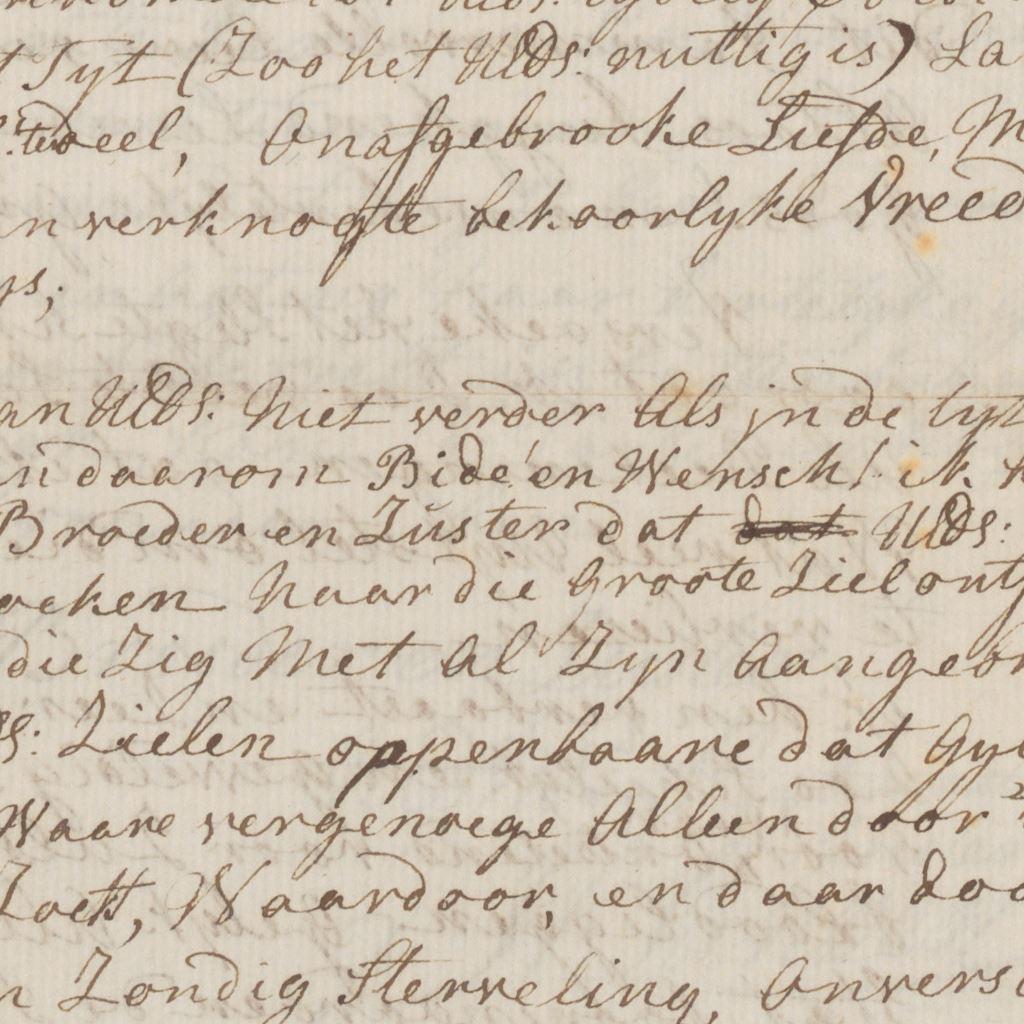 Tyt (Zoo het UEDS: nuttig is) La
deel, Onafgebrooke Liefde, M
n verknogte bekoorlyke Vreed
ys;
an UEDS: Niet verder Als jn de tyt
n daarom Bidé en Wensch! ik
Broeder en Zuster dat dat UEDS:
oeken Naar die Groote Ziel ontf
die Zig Met Al Zyn Aangebo
S: Zielen oppenbaare dat Gy
Waare vergenoege Alleen door
Zoekt, Waardoor, en daar doo
n Zondig Sterveling, Onvers